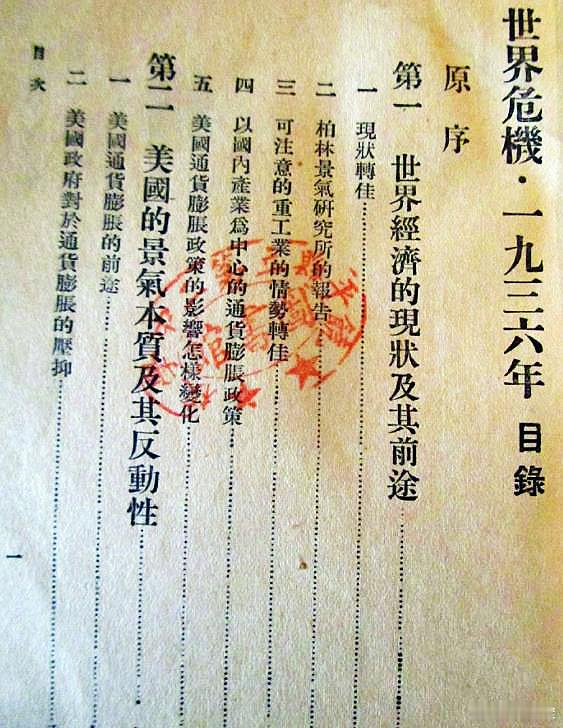 世界危機·一九三六年 目錄
原序
第一 世界經濟的現狀及其前途
一 現狀轉佳
二 柏林景氣研究所的報告
三 可注意的重工業的情勢轉佳
四 以國內產業爲中心的通貨膨脹政策
五 美國通貨膨脹政策的影響怎樣變化
第二 美國的景氣本質及其反動性
一 美國通貨膨脹的前途
二 美國政府對於通貨膨脹的壓抑
目次
一